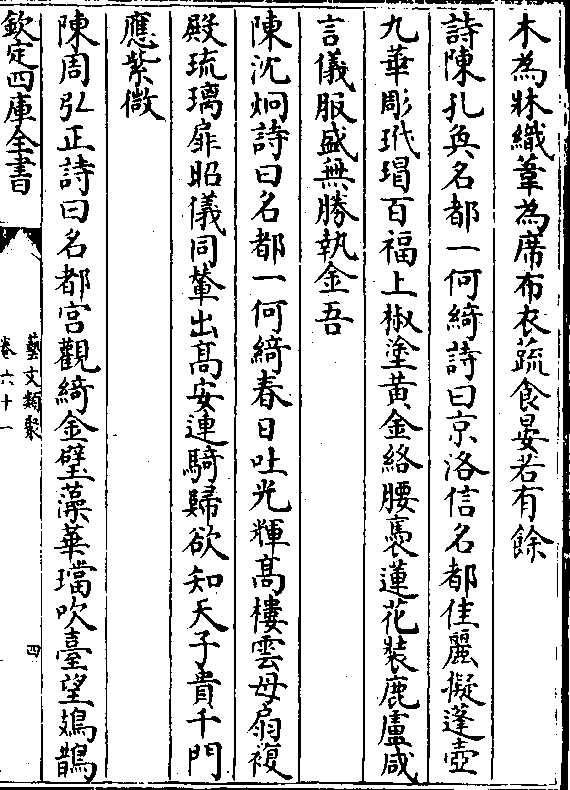 木為牀織葦為席布衣蔬食晏若有餘
詩陳孔奐名都一何綺詩曰京洛信名都佳麗儗蓬壺
九華彫玳瑁百福上椒塗黄金絡腰褭蓮花裝鹿盧咸
言儀服盛無勝執金吾
陳沈炯詩曰名都一何綺春日吐光輝高樓雲母扇複
殿琉璃扉昭儀同輦出高安連騎歸欲知天子貴千門
應紫微
陳周弘正詩曰名都宫觀綺金壁藻華璫吹臺望鳷鵲
欽定四庫全書
藝文類聚
卷六十一
四